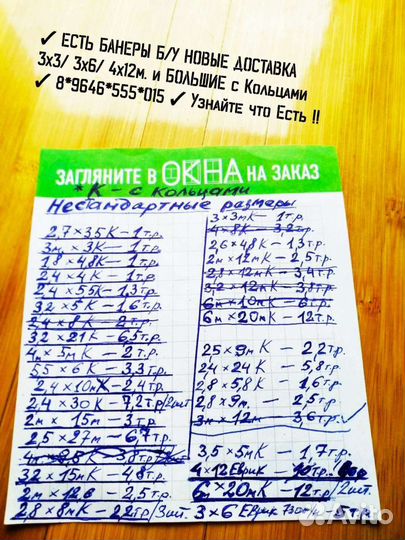 ✓ ЕСТЬ БАНЕРЫ Б/У НОВЫЕ ДОСТАВКА
3х3/ 3х6/ 4х12м. и БОЛЬШИЕ с Кольцами
✓ 8*9646*555*015 ✓ Узнайте что Есть !!
ЗАГЛЯНИТЕ В ОКНА НА ЗАКАЗ
*К – с кольцами
Нестандартные размеры
2,7×35К – 1т.р.
3м × 3К – 1т.р.
18 × 4,8К – 1т.р.
2,4 × 4К – 1т.р.
2,4 × 5,5К – 1,3т.р.
32 × 5К – 1,6т.р.
2,4 × 8К – 2т.р.
32 × 21К – 6,5т.р.
4м × 5мК – 2т.р.
5,5 × 6К – 3,3т.р.
2,4 × 10мК – 2,4т.р.
2,4 × 30К – 7,2т.р/2шт
2м × 15м – 3т.р.
2,5 × 27м – 6,7т.р.
32 × 15мК – 4,8т.р.
2м × 12,6 – 2,5т.р.
2,8 × 8мК – 22тр/3шт.
3 × 3мК – 1т.р.
4 × 8К – 3,2т.р.
2,6 × 4,8К – 1,3т.р.
2м × 12мК – 2,5т.р.
2,8 × 12мК – 3,4т.р.
3,2 × 12мК – 3,8т.р.
6м × 10мК – 6т.р.
6м × 20мК – 12т.р.
25 × 9мК – 2,2т.р.
24 × 24К – 5,8т.р.
2,8 × 5,8К – 1,6т.р.
2,8 × 9м. – 2,5т.р.
3м × 12м – 3,6т.р.
3,5 × 5мК – 1,7т.р.
4 × 12 Еврик – 10т.р.
6м × 20мК – 12тр/2шт.
3 × 6 Еврик
Avito